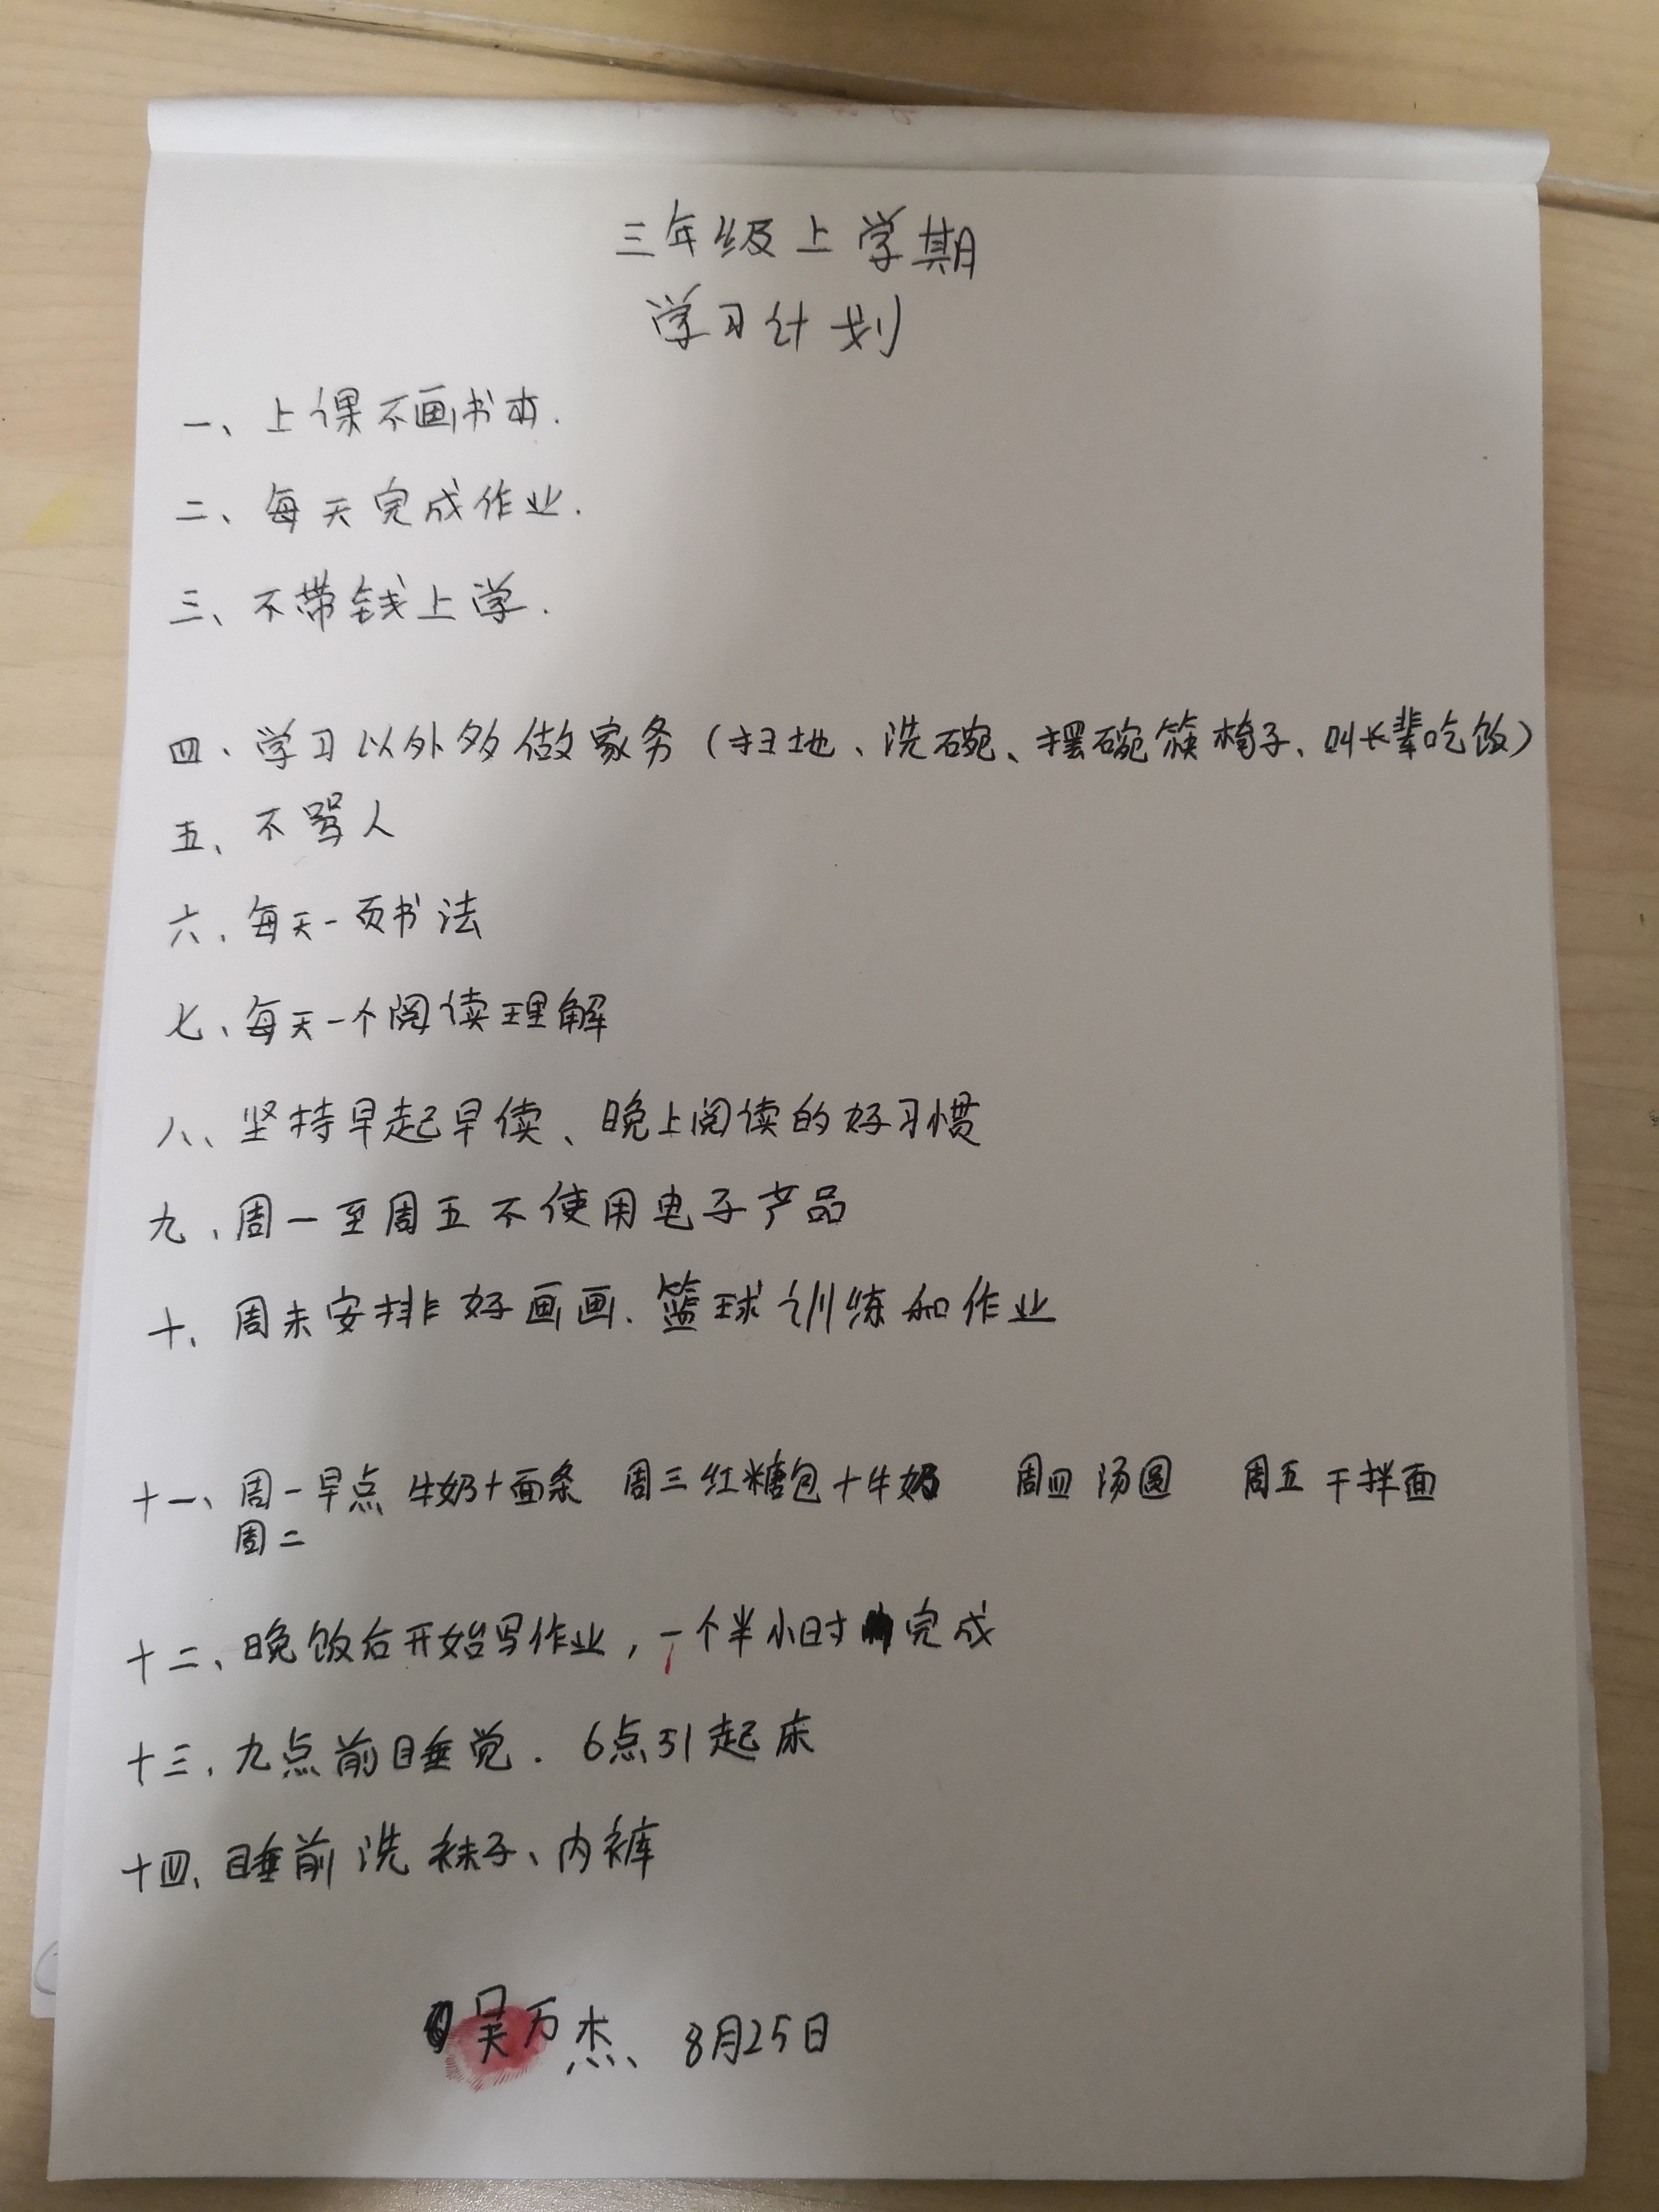 三年级上学期
学习计划
一、上课不画书本.
二、每天完成作业.
三、不带钱上学.
四、学习以外多做家务（扫地、洗碗、摆碗筷椅子、叫长辈吃饭）
五、不骂人
六、每天一页书法
七、每天一个阅读理解
八、坚持早起早读、晚上阅读的好习惯
九、周一至周五不使用电子产品
十、周末安排好画画.篮球训练和作业
十一、周一早点 牛奶+面条 周三红糖包+牛奶 周四 汤圆 周五 干拌面
周二
十二、晚饭后开始写作业，一个半小时完成
十三、九点前睡觉. 6点51起床
十四、睡前洗袜子、内裤
吴万杰、8月25日